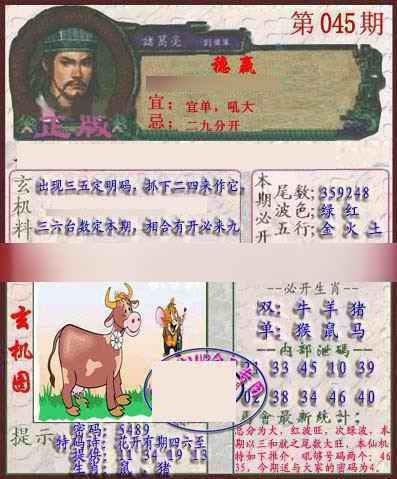 第045期
諸葛亮
穩贏
正版
宜：宜单，吼大
忌：二九分开
玄机料
出现三五定明码，抓下二四来作它，
三六台数定本期，相合有开必来九
本期必开
尾数；359248
波色；绿 红
五行；金 火 土
必开生肖
双：牛 羊 猪
单：猴 鼠 马
玄机图
内部泄码
33 45 10 39
38 34 46 40
會最新統计：
总分为大，红波旺，次绿波，本
期以三和就之尾数大旺，本仙机
特如下推介，吼够号码两个：46
35，今期送与大家的密码为4．
提示
密码：5489
特码诗：花开有期四六至
提供：11 34 19 13
生肖：鼠．猪